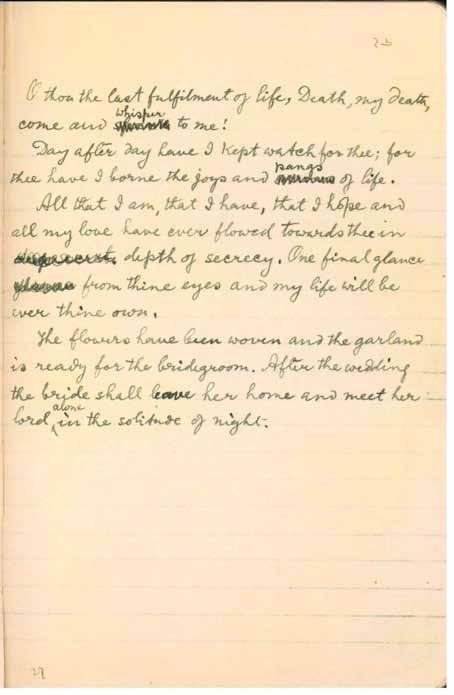 O thou the last fulfilment of life, Death, my death,
come and whisper to me!
Day after day have I kept watch for thee; for
thee have I borne the joys and pangs of life.
All that I am, that I have, that I hope and
all my love have ever flowed towards thee in
depth of secrecy. One final glance
from thine eyes and my life will be
ever thine own.
The flowers have been woven and the garland
is ready for the bridegroom. After the wedding
the bride shall leave her home and meet her
lord alone in the solitude of night.
29